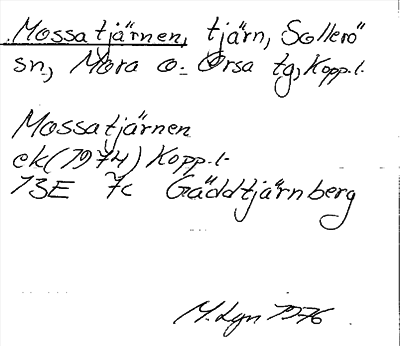 Mossatjärnen, tjärn, Sollerö
sn, Mora o. Orsa tg, Kopp.l.
Mossatjärnen
ek(1974) Kopp.l.
13E 7c Gäddtjärnberg
M. Lgn 1976